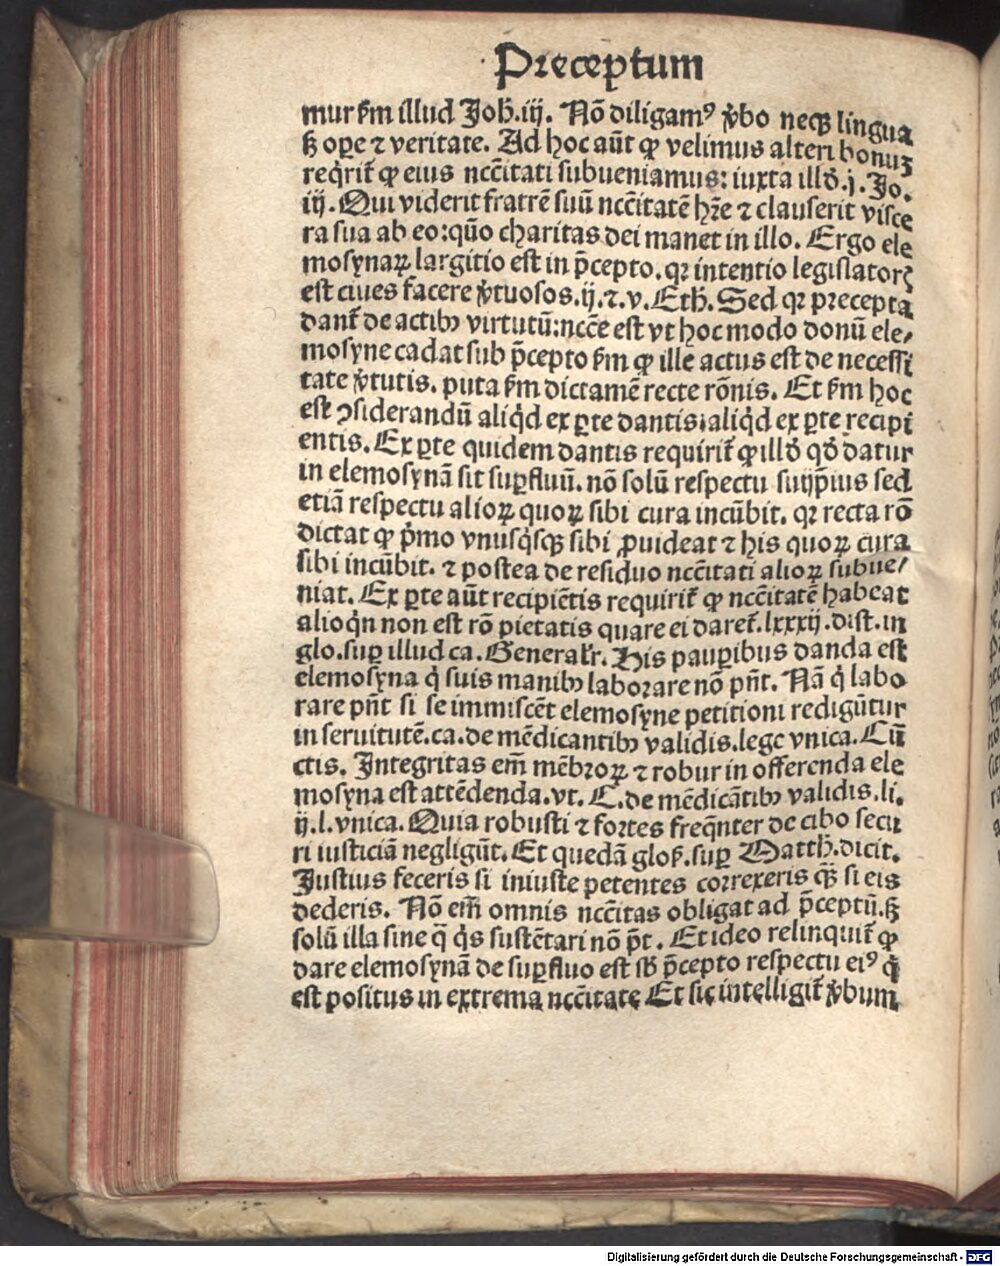 Preceptum
mur ẜm illud Joh̄.iij. Nō diligamꝰ v̓bo neqꝫ lingua
ß oꝑe ⁊ veritate. Ad hoc aūt ꝙ velimus alteri bonuꝫ
req̇rit̄ ꝙ eius nc̄citati subueniamus: iuxta illd̓.j.Jo.
iij. Qui viderit fratrē suū nc̄citatē hr̄e ⁊ clauserit visce
ra sua ab eo:qūo charitas dei manet in illo. Ergo ele
mosynaꝝ largitio est in p̄cepto. qꝛ intentio legislatorꝭ
est ciues facere v̓tuosos.ij.⁊.v.Eth̄. Sed qꝛ precepta
dant̄ de actibꝰ virtutū:nc̄ce est vt hoc modo donū ele⸗
mosyne cadat sub p̄cepto ẜm ꝙ ille actus est de necessi
tate v̓tutis. puta ẜm dictamē recte rōnis. Et ẜm hoc
est ꝯsiderandū aliq̇d ex ꝑte dantis: aliq̇d ex ꝑte recipi
entis. Ex ꝑte quidem dantis requirit̄ ꝙ illd̓ qd̓ datur
in elemosynā sit suꝑfluū. nō solū respectu suijp̄ius sed
etiā respectu alioꝝ quoꝝ sibi cura incūbit. qꝛ recta rō
dictat ꝙ p̄mo vnusq̇sqꝫ sibi ꝓuideat ⁊ his quoꝝ cura
sibi incūbit. ⁊ postea de residuo nc̄citati alioꝝ subue⸗
niat. Ex ꝑte aūt recipiētis requirit̄ ꝙ nc̄citatē habeat
alioq̇n non est rō pietatis quare ei daret̄.lxxxij.dist.in
glo.suꝑ illud ca. Generalr̄. His pauꝑibus danda est
elemosyna q̇ suis manibꝰ laborare nō pn̄t. Nā q̇ labo
rare pn̄t si se immiscēt elemosyne petitioni redigūtur
in seruitutē.ca.de mēdicantibꝰ validis.lege vnica. Cū
ctis. Integritas em̄ mēbroꝝ ⁊ robur in offerenda ele
mosyna est attēdenda.vt. C.de mēdicātibꝰ validis.li.
ij.l.vnica. Quia robusti ⁊ fortes freq̄nter de cibo secu
ri iusticiā negligūt. Et quedā gloẜ.suꝑ Matth̄.dicit.
Justius feceris si iniuste petentes correxeris qꝫ̄ si eis
dederis. Nō em̄ omnis nc̄citas obligat ad p̄ceptū.ß
solū illa sine q̄ q̇s sustētari nō pt̄. Et ideo relinquit̄ ꝙ
dare elemosynā de suꝑfluo est sb̓ p̄cepto respectu eiꝰ q̇
est positus in extrema nc̄citate Et sic intelligit̄ v̓bum
Digitalisierung gefördert durch die Deutsche Forschungsgemeinschaft - DFG